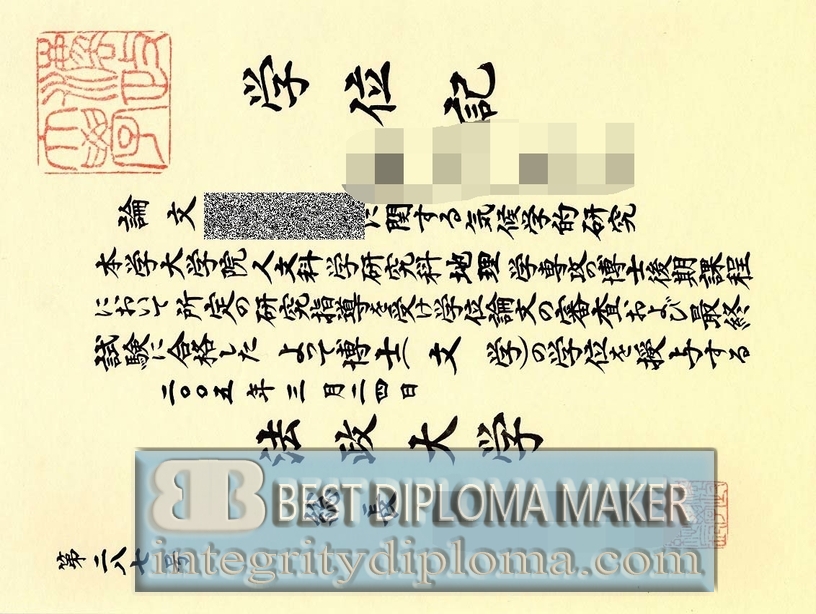 学位記
論文 に関する気候学的研究
本学大学院人文科学研究科地理学専攻の博士後期課程
において所定の研究指導を受け学位論文の審査および最終
試験に合格した よって博士(文 学)の学位を授与する
二〇〇五年三月二四日
法政大学
総長
BB BEST DIPLOMA MAKER
第二八七号
integritydiploma.com